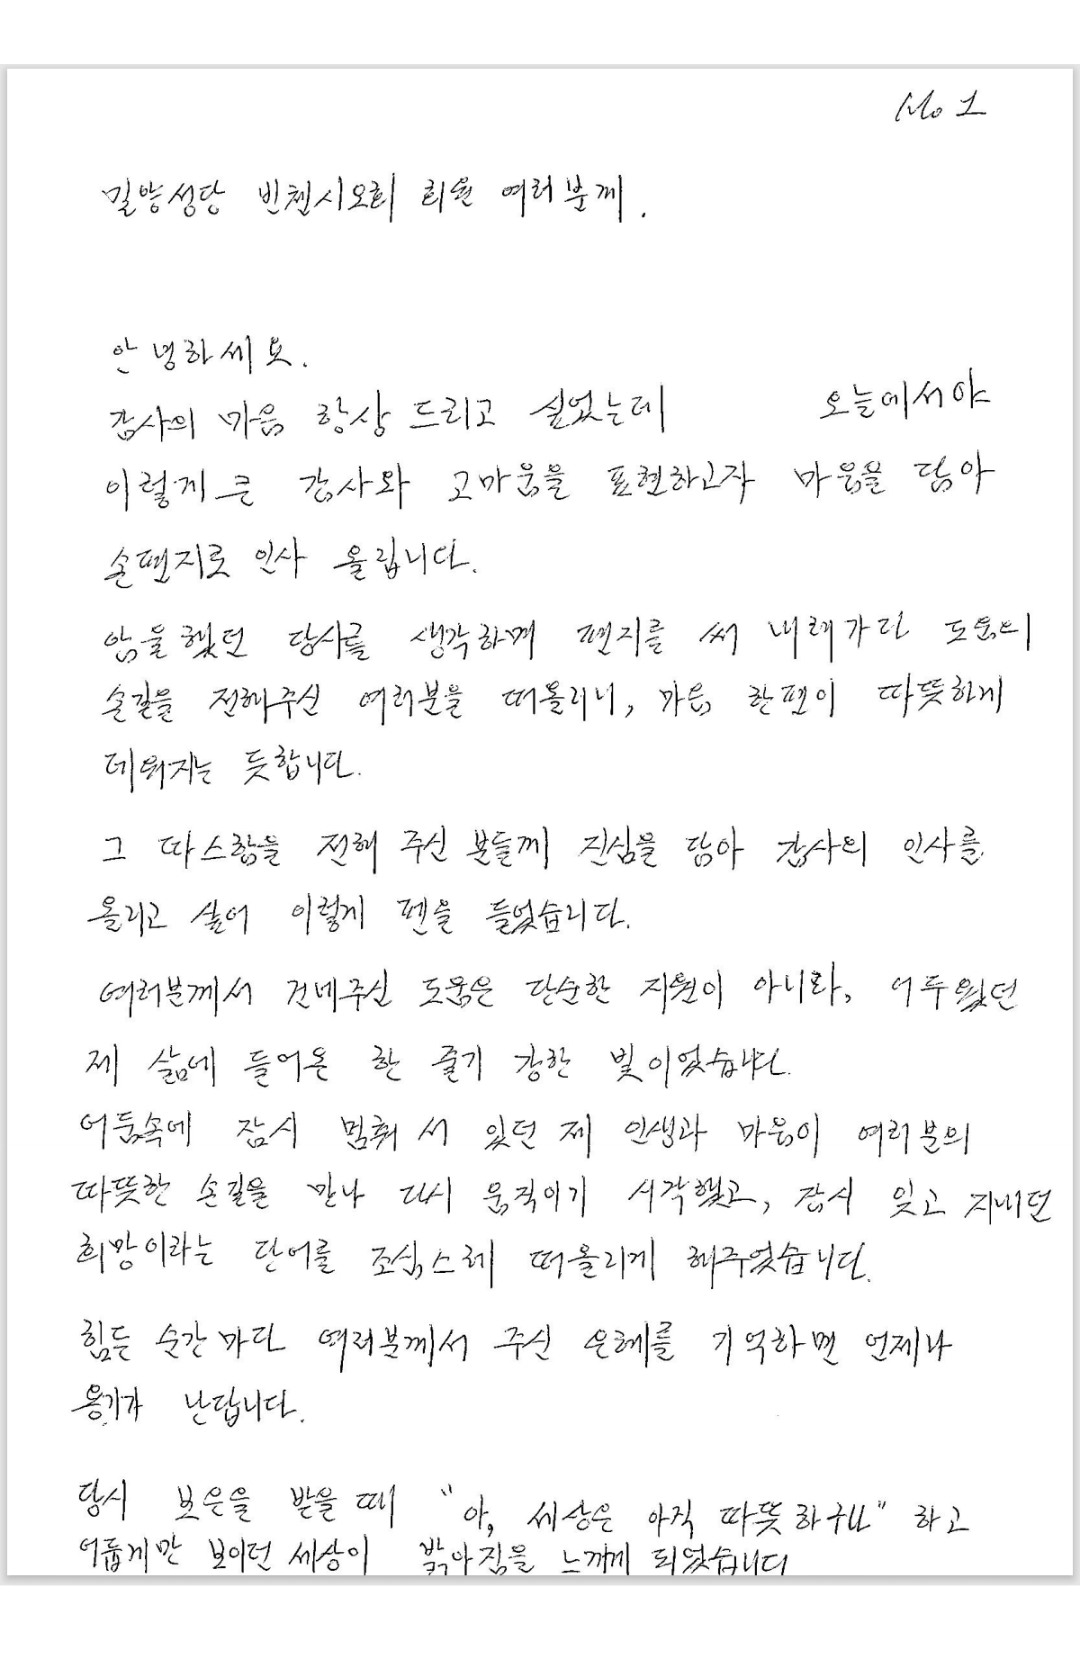 No 1
밀양성당 빈첸시오회 회원 여러분께.
안녕하세요.
감사의 마음 항상 드리고 싶었는데 오늘에서야
이렇게 큰 감사와 고마움을 표현하고자 마음을 담아
손편지로 인사 올립니다.
암을 했던 당시를 생각하며 편지를 써 내려가던 도움의
손길을 전해주신 여러분을 떠올리니, 마음 한편이 따뜻하게
데워지는 듯합니다.
그 따스함을 전해 주신 분들께 진심을 담아 감사의 인사를
올리고 싶어 이렇게 펜을 들었습니다.
여러분께서 건네주신 도움은 단순한 지원이 아니라, 어두웠던
제 삶에 들어온 한 줄기 강한 빛이었습니다.
어둠속에 잠시 멈춰 서 있던 제 인생과 마음이 여러분의
따뜻한 손길을 만나 다시 움직이기 시작했고, 잠시 잊고 지내던
희망이라는 단어를 조심스레 떠올리게 해주었습니다.
힘든 순간마다 여러분께서 주신 은혜를 기억하면 언제나
용기가 난답니다.
당시 보은을 받을 때 "아, 세상은 아직 따뜻하구나" 하고
어둡게만 보이던 세상이 밝아짐을 느끼게 되었습니다